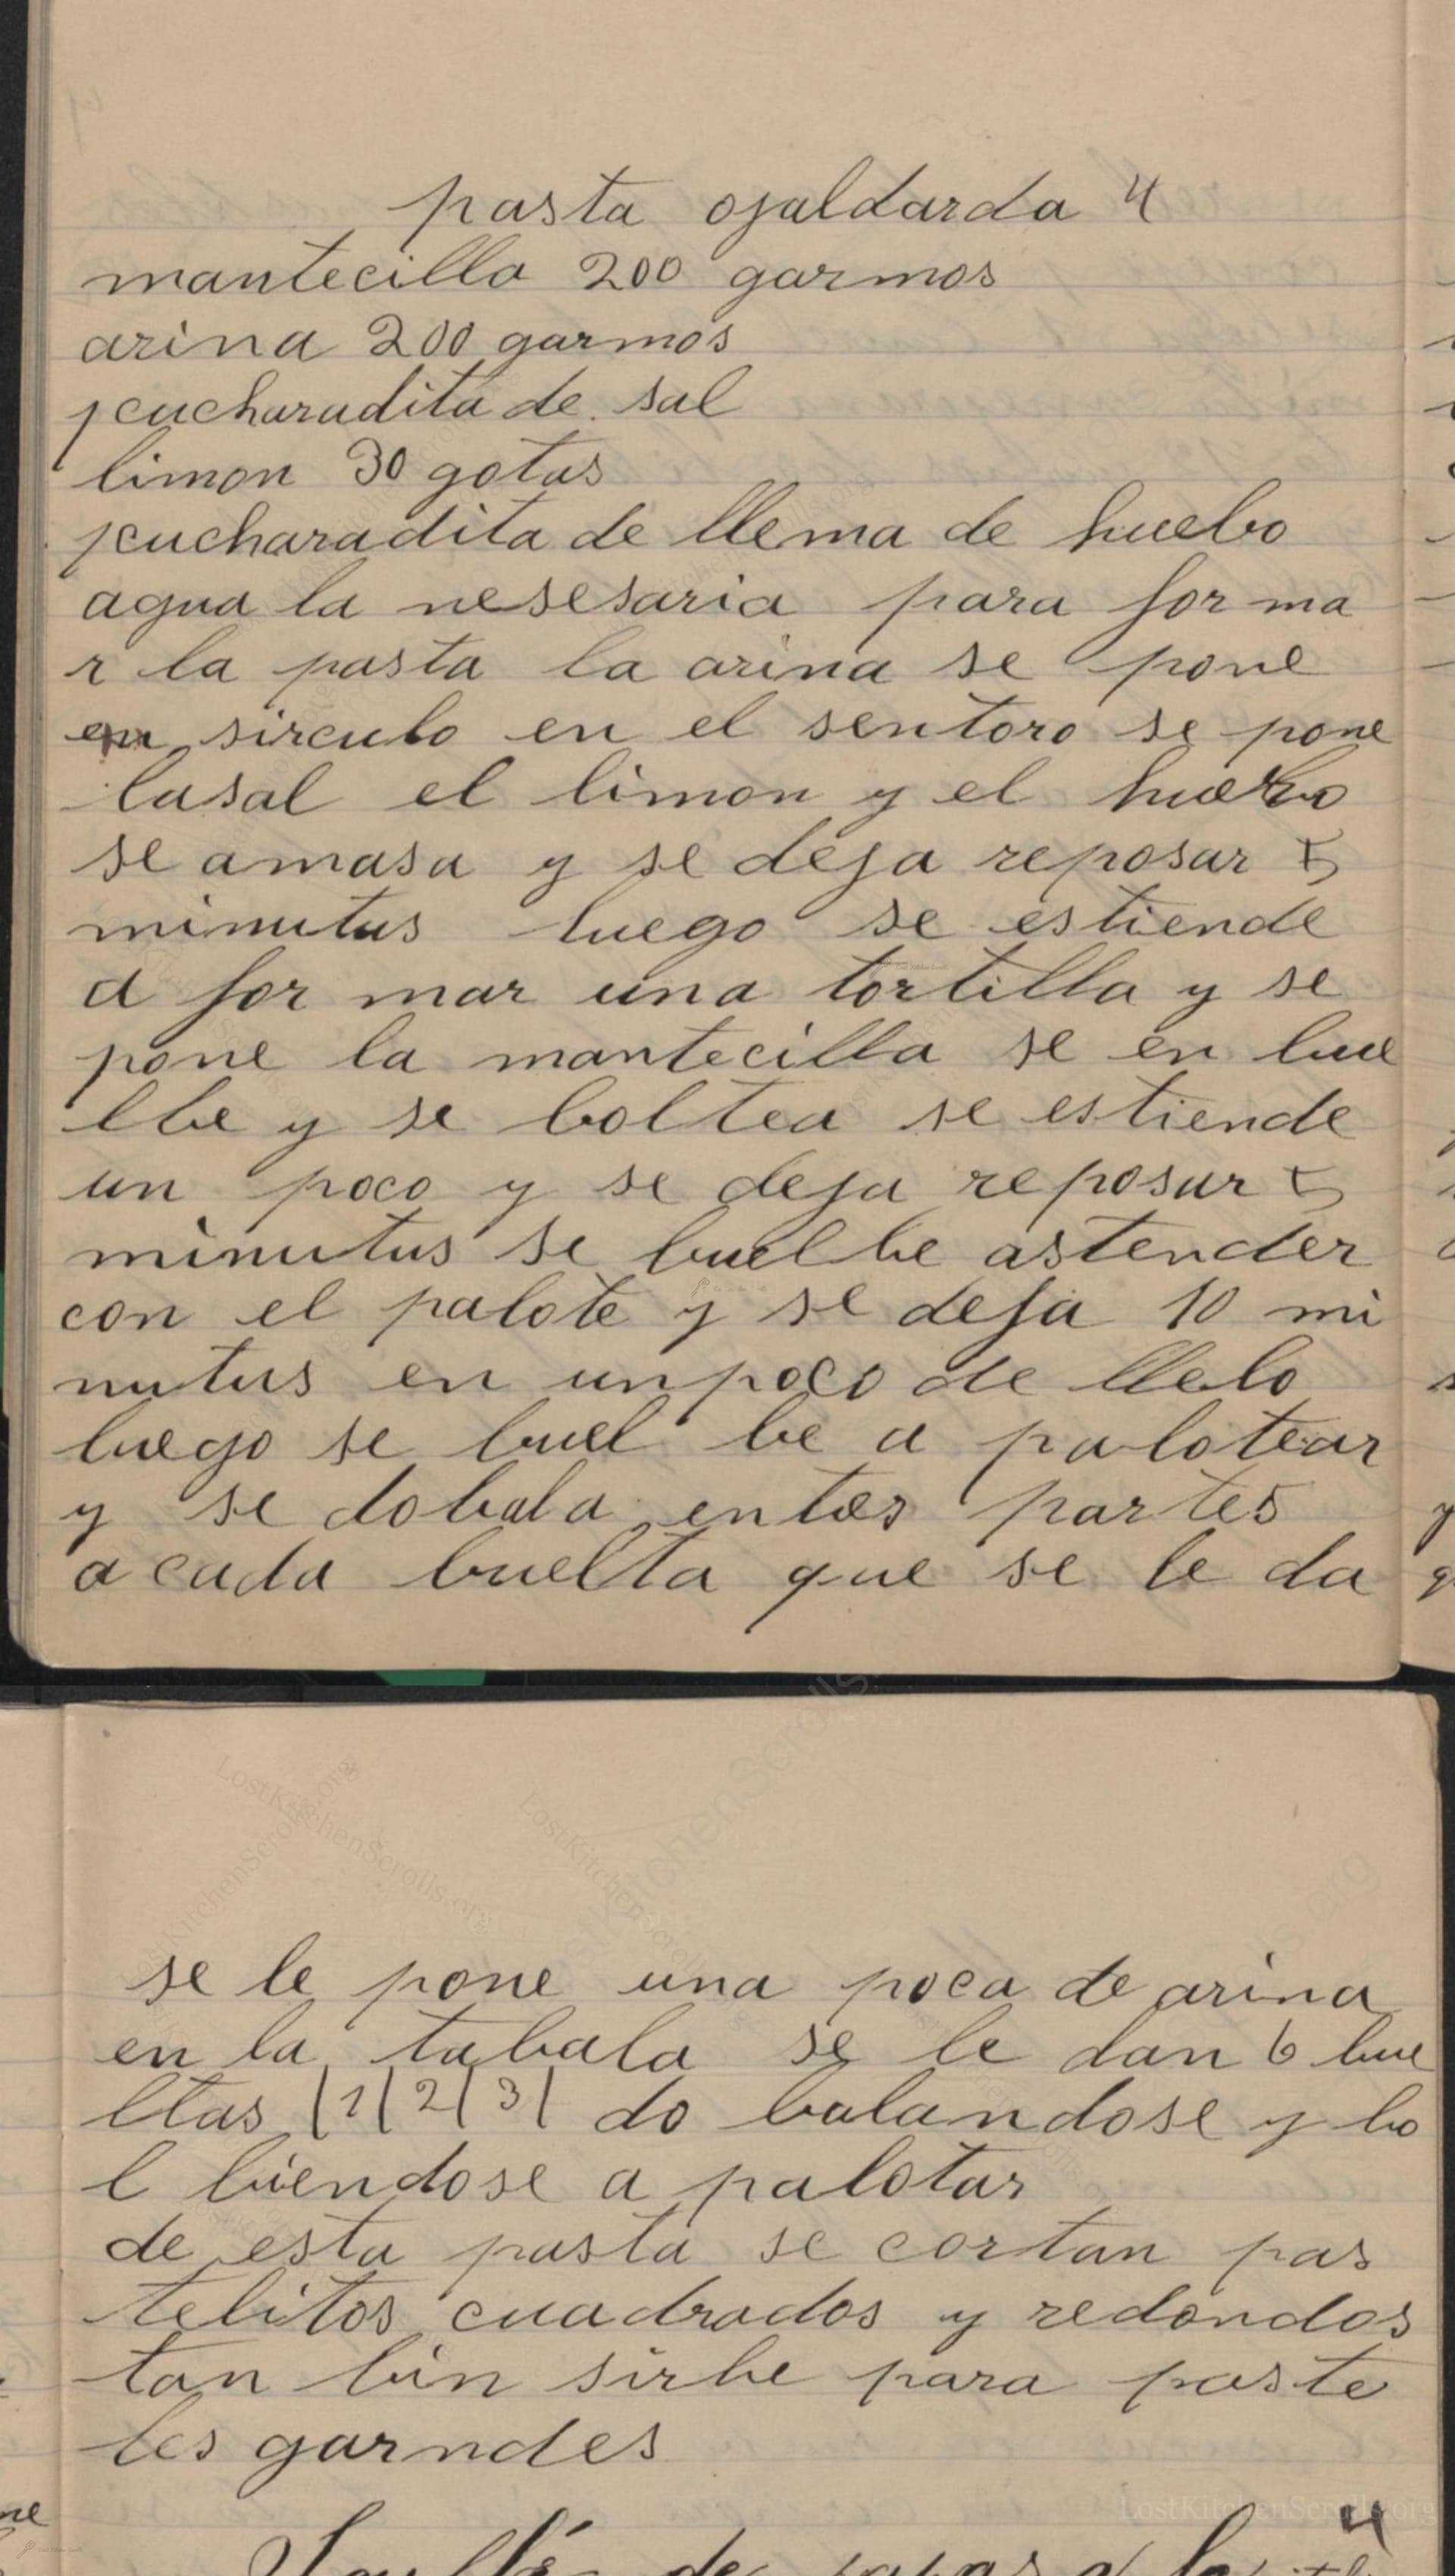 pasta ojaldarda 4
mantecilla 200 garmos
arina 200 garmos
1 cucharadita de sal
limon 30 gotas
1 cucharadita de llema de huebo
agua la nesesaria para forma
r la pasta la arina se pone
en sirculo en el sentoro se pone
lasal el limon y el huebo
se amasa y se deja reposar 5
minutus luego se estiende
a for mar una tortilla y se
pone la mantecilla se en bue
lbe y se boltea se estiende
un poco y se deja reposar 5
minutus se buelbe astender
con el palote y se deja 10 mi
nutus en un poco de llelo
luego se buel be a palotear
y se dobala enters partes
a cada buelta que se le da
se le pone una poca de arina
en la tabala se le dan 6 bue
ltas |1|2|3| do balandose y bo
l biendose a palotar
de esta pasta se cortan pas
telitos cuadrados y redondos
tan bin sirbe para paste
les garndes
ne
4
de papas
LostKitchenScrolls.org